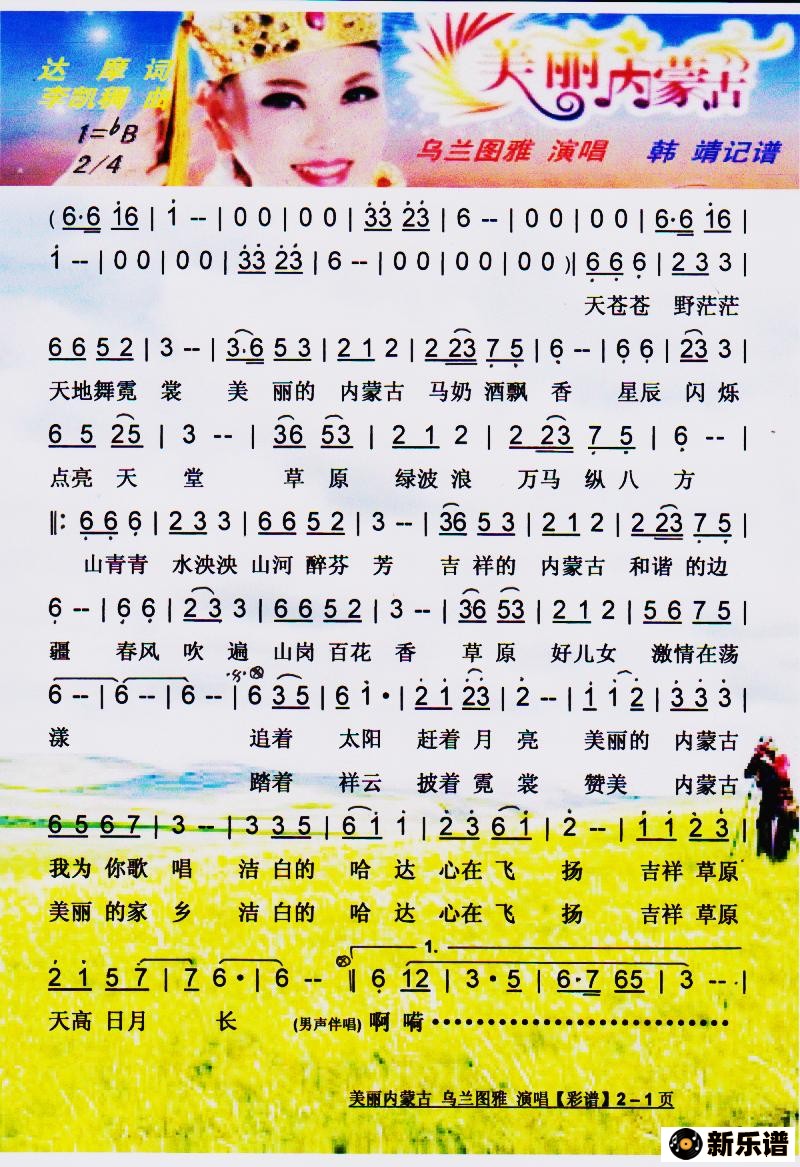 达 摩 词
李凯稠 曲
1=♭B
2/4
美丽内蒙古
乌兰图雅 演唱 韩 靖记谱
(6·6 i6 | i -- | 0 0 | 0 0 | 33 23 | 6 -- | 0 0 | 0 0 | 6·6 i6 |
i -- | 0 0 | 0 0 | 33 23 | 6 -- | 0 0 | 0 0 | 0 0 )| 6 6 6 | 2 3 3 |
天苍苍 野茫茫
6 6 5 2 | 3 -- | 3·6 5 3 | 2 1 2 | 2 23 7 5 | 6 -- | 6 6 | 23 3 |
天地舞霓 裳 美 丽的 内蒙古 马奶 酒飘 香 星辰 闪 烁
6 5 25 | 3 -- | 36 53 | 2 2 1 | 2 23 7 5 | 6 -- |
点亮 天 堂 草 原 绿波 浪 万马 纵 八 方
‖: 6 6 6 | 2 3 3 | 6 6 5 2 | 3 -- | 36 5 3 | 2 1 2 | 2 23 7 5 |
山青青 水泱泱 山河 醉芬 芳 吉 祥的 内蒙古 和谐 的边
6 -- | 6 6 | 2 3 3 | 6 6 5 2 | 3 -- | 36 53 | 2 1 2 | 5 6 7 5 |
疆 春风 吹 遍 山岗 百花 香 草 原 好儿女 激情在荡
6 -- | 6 -- | 6 -- | 6 3 5 | 6 i· | 2 i 23 | 2 -- | i i 2 | 3 3 3 |
漾 追着 太阳 赶着 月 亮 美丽的 内蒙古
踏着 祥云 披着 霓 裳 赞美 内蒙古
6 5 6 7 | 3 -- | 3 3 5 | 6 i i | 2 3 6 i | 2 -- | i i 2 3 |
我为 你歌 唱 洁 白的 哈 达 心在 飞 扬 吉祥 草原
美丽 的家 乡 洁 白的 哈 达 心在 飞 扬 吉祥 草原
1.
2 i 5 7 | 7 6· | 6 -- ‖ 6 12 | 3· 5 | 6·7 65 | 3 -- |
天高 日月 长 (男声伴唱) 啊 嗬••••••••••••••••••••••••
美丽内蒙古 乌兰图雅 演唱【彩谱】2－1页
新乐谱